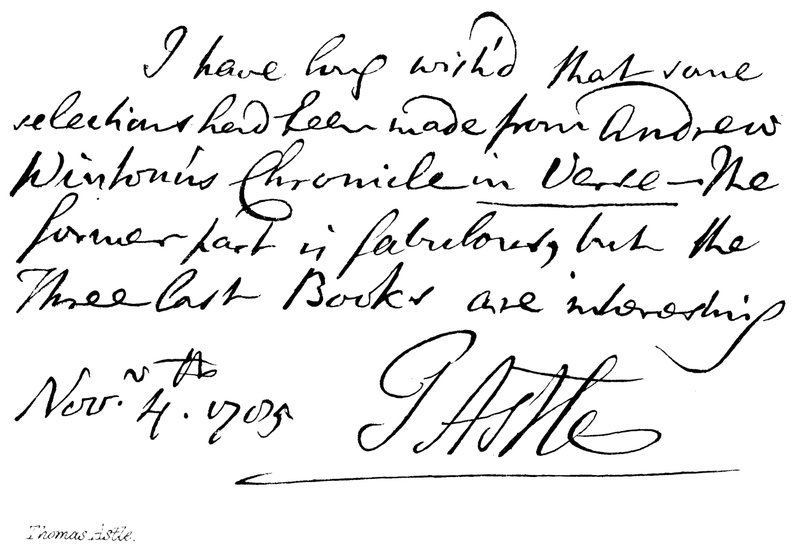 I have long wish'd that some
selections had been made from Andrew
Wintoun's Chronicle in Verse — The
former part is fabulous, but the
Three last Books are interesting
Nov.r 4th.
TAstle
Thomas Astle.